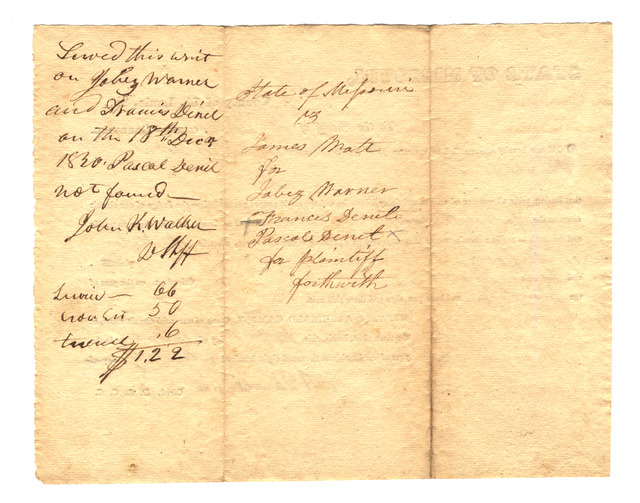 Served this writ
on Jabez Warner
and Francis Denil
on the 18th Decr
1820. Pascal Denil
not found —
John K. Walker
D Shff
Service — 66
50
.6
$1.22
State of Missouri
vs
James Matt
for
Jabez Warner
Francis Denile
Pascal Denet x
for plaintiff
forthwith
STATE OF